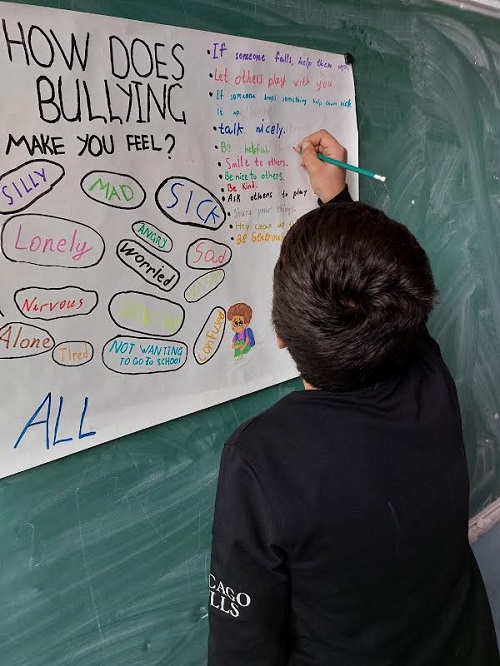 HOW DOES
BULLYING
MAKE YOU FEEL?
SILLY
MAD
SICK
Lonely
ANGRY
Worried
Sad
Nervous
Alone
Tired
NOT WANTING
TO GO to SCHOOL
confused
ALL
• If someone falls, help them
• Let others play with you
• If someone drops something help them pick
it up.
• talk nicely.
• Be helpful.
• Smile to others.
• Be nice to others.
• Be Kind.
• Ask others to play
• Share your things.
• Help clean up
• Be Generous
CAGO
LLS